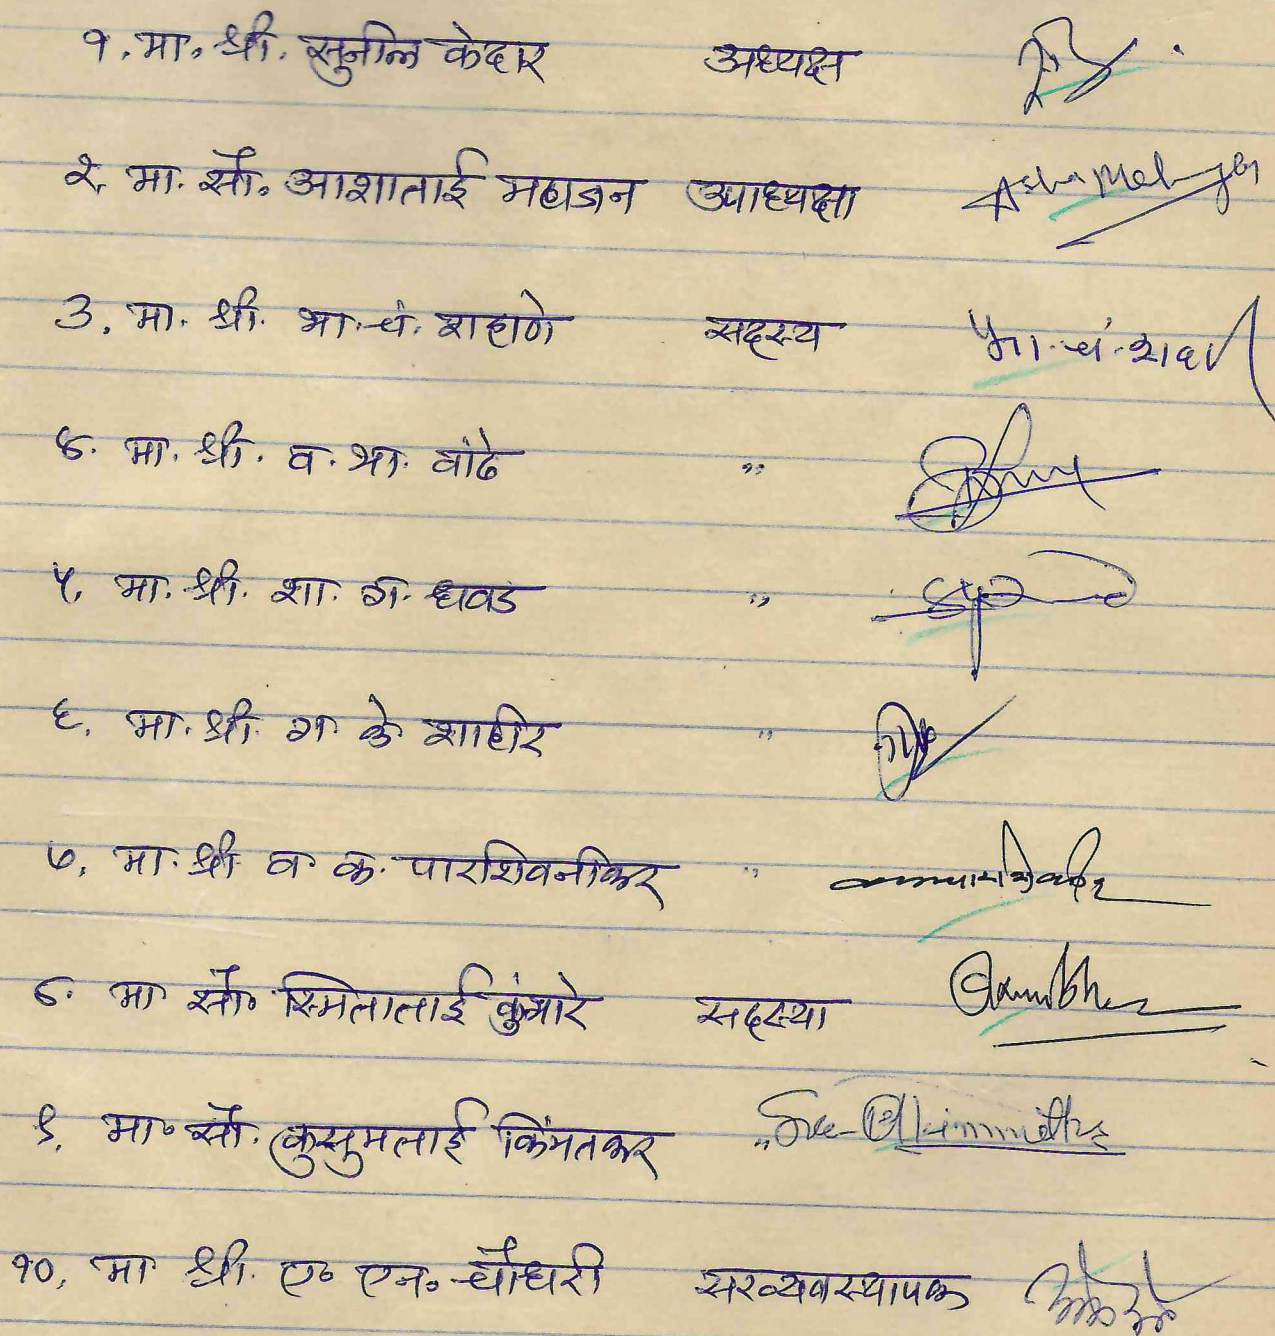 १. मा. श्री. सुनील केदार अध्यक्ष
२. मा. सौ. आशाताई महाजन उपाध्यक्षा Asha Mahajan
३. मा. श्री. भा. चं. शहाणे सदस्य भा. चं. शहा
४. मा. श्री. व. भा. बांदे "
५. मा. श्री. शा. ग. धवड "
६. मा. श्री. ग. के शाहीर "
७. मा. श्री व. क. पारशिवनीकर "
८. मा सौ. स्मिताताई कुंभारे सदस्या
९. मा. सौ. कुसुमताई किंमतकर "
१०. मा श्री. ए. एन. चौधरी सरव्यवस्थापक